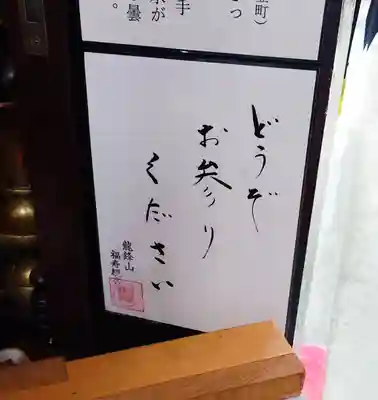 町）
っ
手
が
曇
。
どうぞ
お参り
ください
龍鋒山